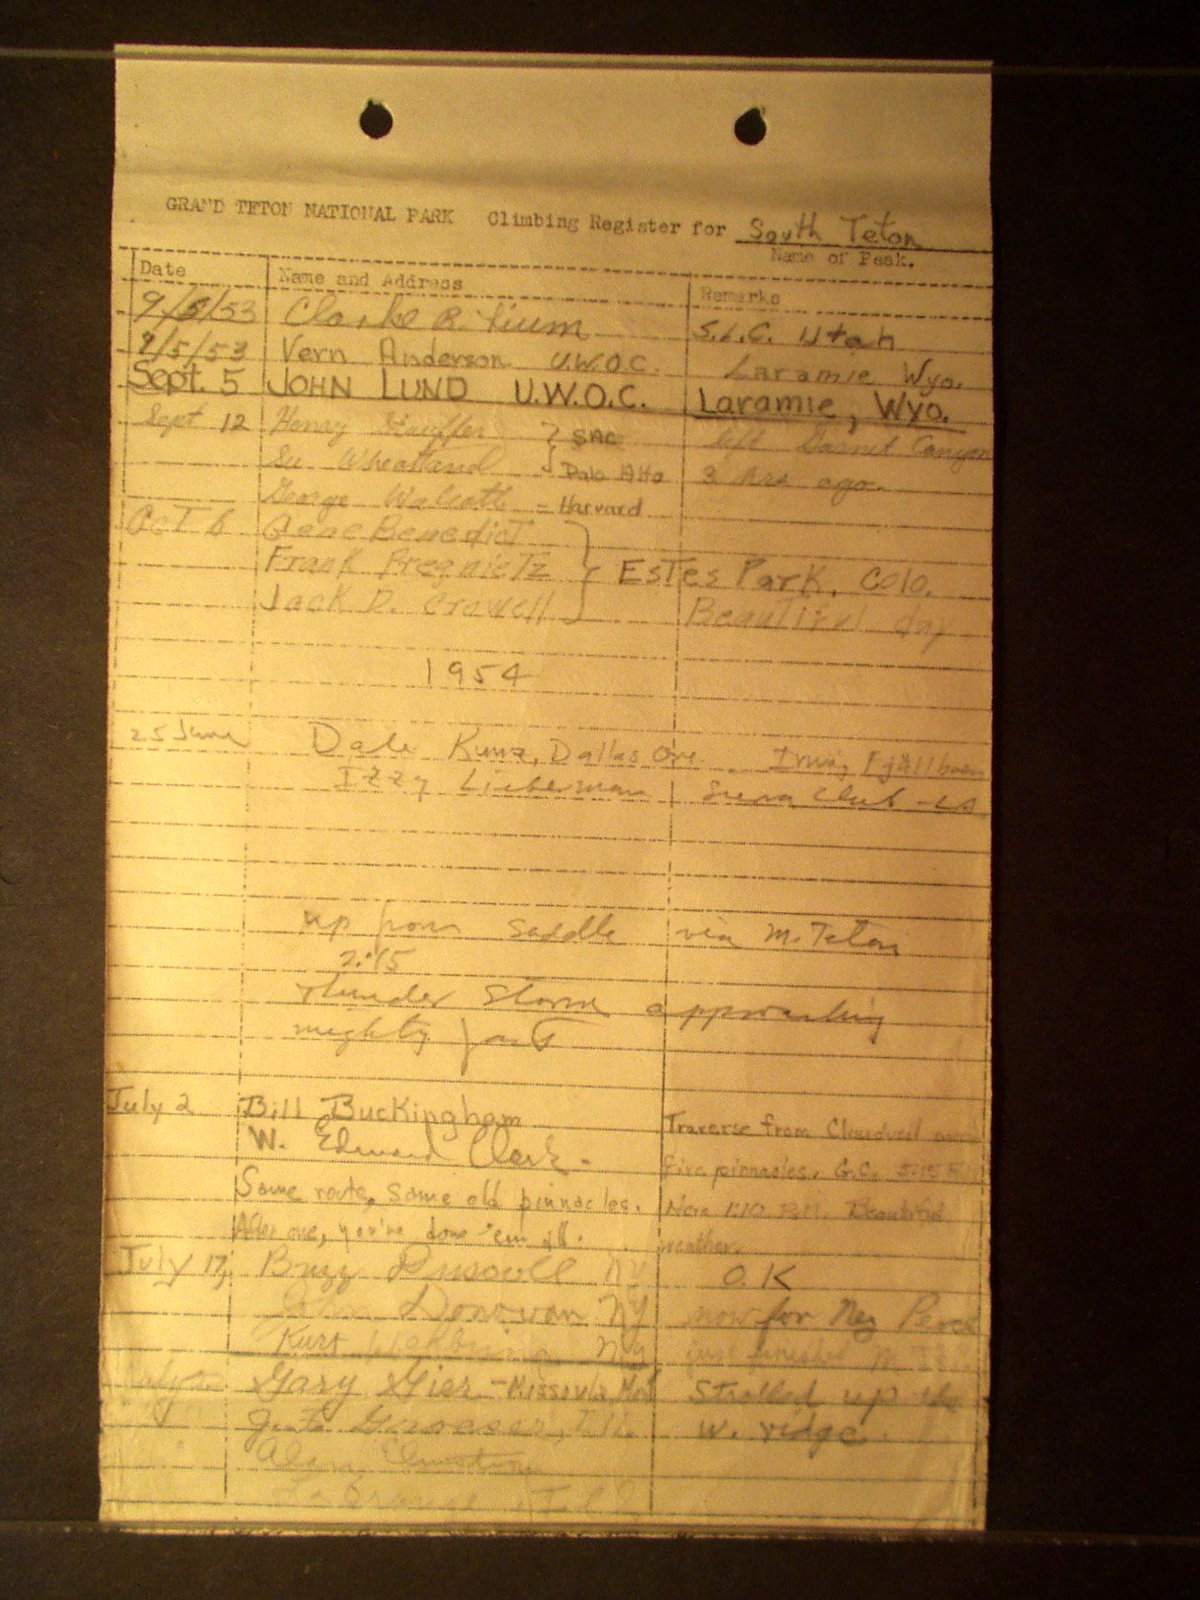 GRAND TETON NATIONAL PARK Climbing Register for South Teton
Name of Peak.
Date Name and Address Remarks
9/5/53 Clarke R. S.L.C. Utah
9/5/53 Vern Anderson U.W.O.C. Laramie Wyo.
Sept. 5 JOHN LUND U.W.O.C. Laramie, Wyo.
Sept 12 Henry Stauffer } SAC left Garnet Canyon
Su Wheatland } Palo Alto 3 hrs ago.
George Walcott = Harvard
OCT 6 Gene Benedict
Frank Pregnietz } Estes Park, Colo.
Jack D. Crowell Beautiful day
1954
25 June Dale Kunz, Dallas Ore. Irving
Izzy Lieberman Sierra Club - LA
up from Saddle via M. Teton
2:15
thunder storm approaching
mighty fast
July 2 Bill Buckingham Traverse from Cloudveil over
W. Edward Clark. five pinnacles. G.C. 5:15
Same route, same old pinnacles. Here 1:10 P.M. Beautiful
After one, you've done 'em all. weather.
July 17, Buzz Driscoll NY O.K
John Donovan NY now for Nez Perce
Kurt NY just finished M
Gary Gier - Missoula, Mont Strolled up the
W. ridge.
Ill